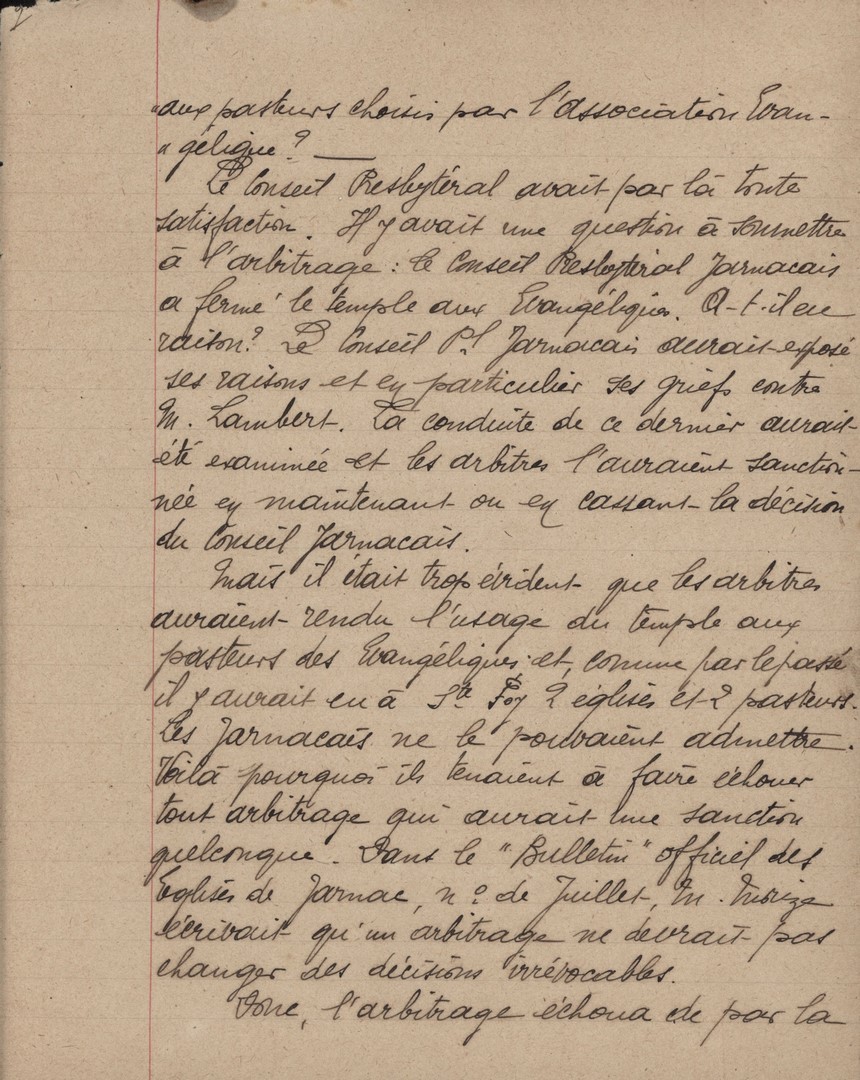 "aux pasteurs choisis par l'association Evan-
" gélique? —
Le Conseil Presbytéral avait par là toute
satisfaction. Il y avait une question à soumettre
à l'arbitrage : le Conseil Presbytéral Jarnacais
a fermé le temple aux Evangéliques. A-t-il eu
raison? Le Conseil Pal Jarnacais aurait exposé
ses raisons et en particulier ses griefs contre
M. Lambert. La conduite de ce dernier aurait
été examinée et les arbitres l'auraient sanction-
née en maintenant ou en cassant la décision
du Conseil Jarnacais.
Mais il était trop évident que les arbitres
auraient rendu l'usage du temple aux
pasteurs des Evangéliques et, comme par le passé
il y aurait eu à Ste Foy 2 églises et 2 pasteurs.
Les Jarnacais ne le pouvaient admettre.
Voilà pourquoi ils tenaient à faire échouer
tout arbitrage qui aurait une sanction
quelconque. Dans le "Bulletin" officiel des
Eglises de Jarnac, n° de Juillet, M.
écrivait qu'un arbitrage ne devrait pas
changer des décisions irrévocables.
Donc, l'arbitrage échoua de par la